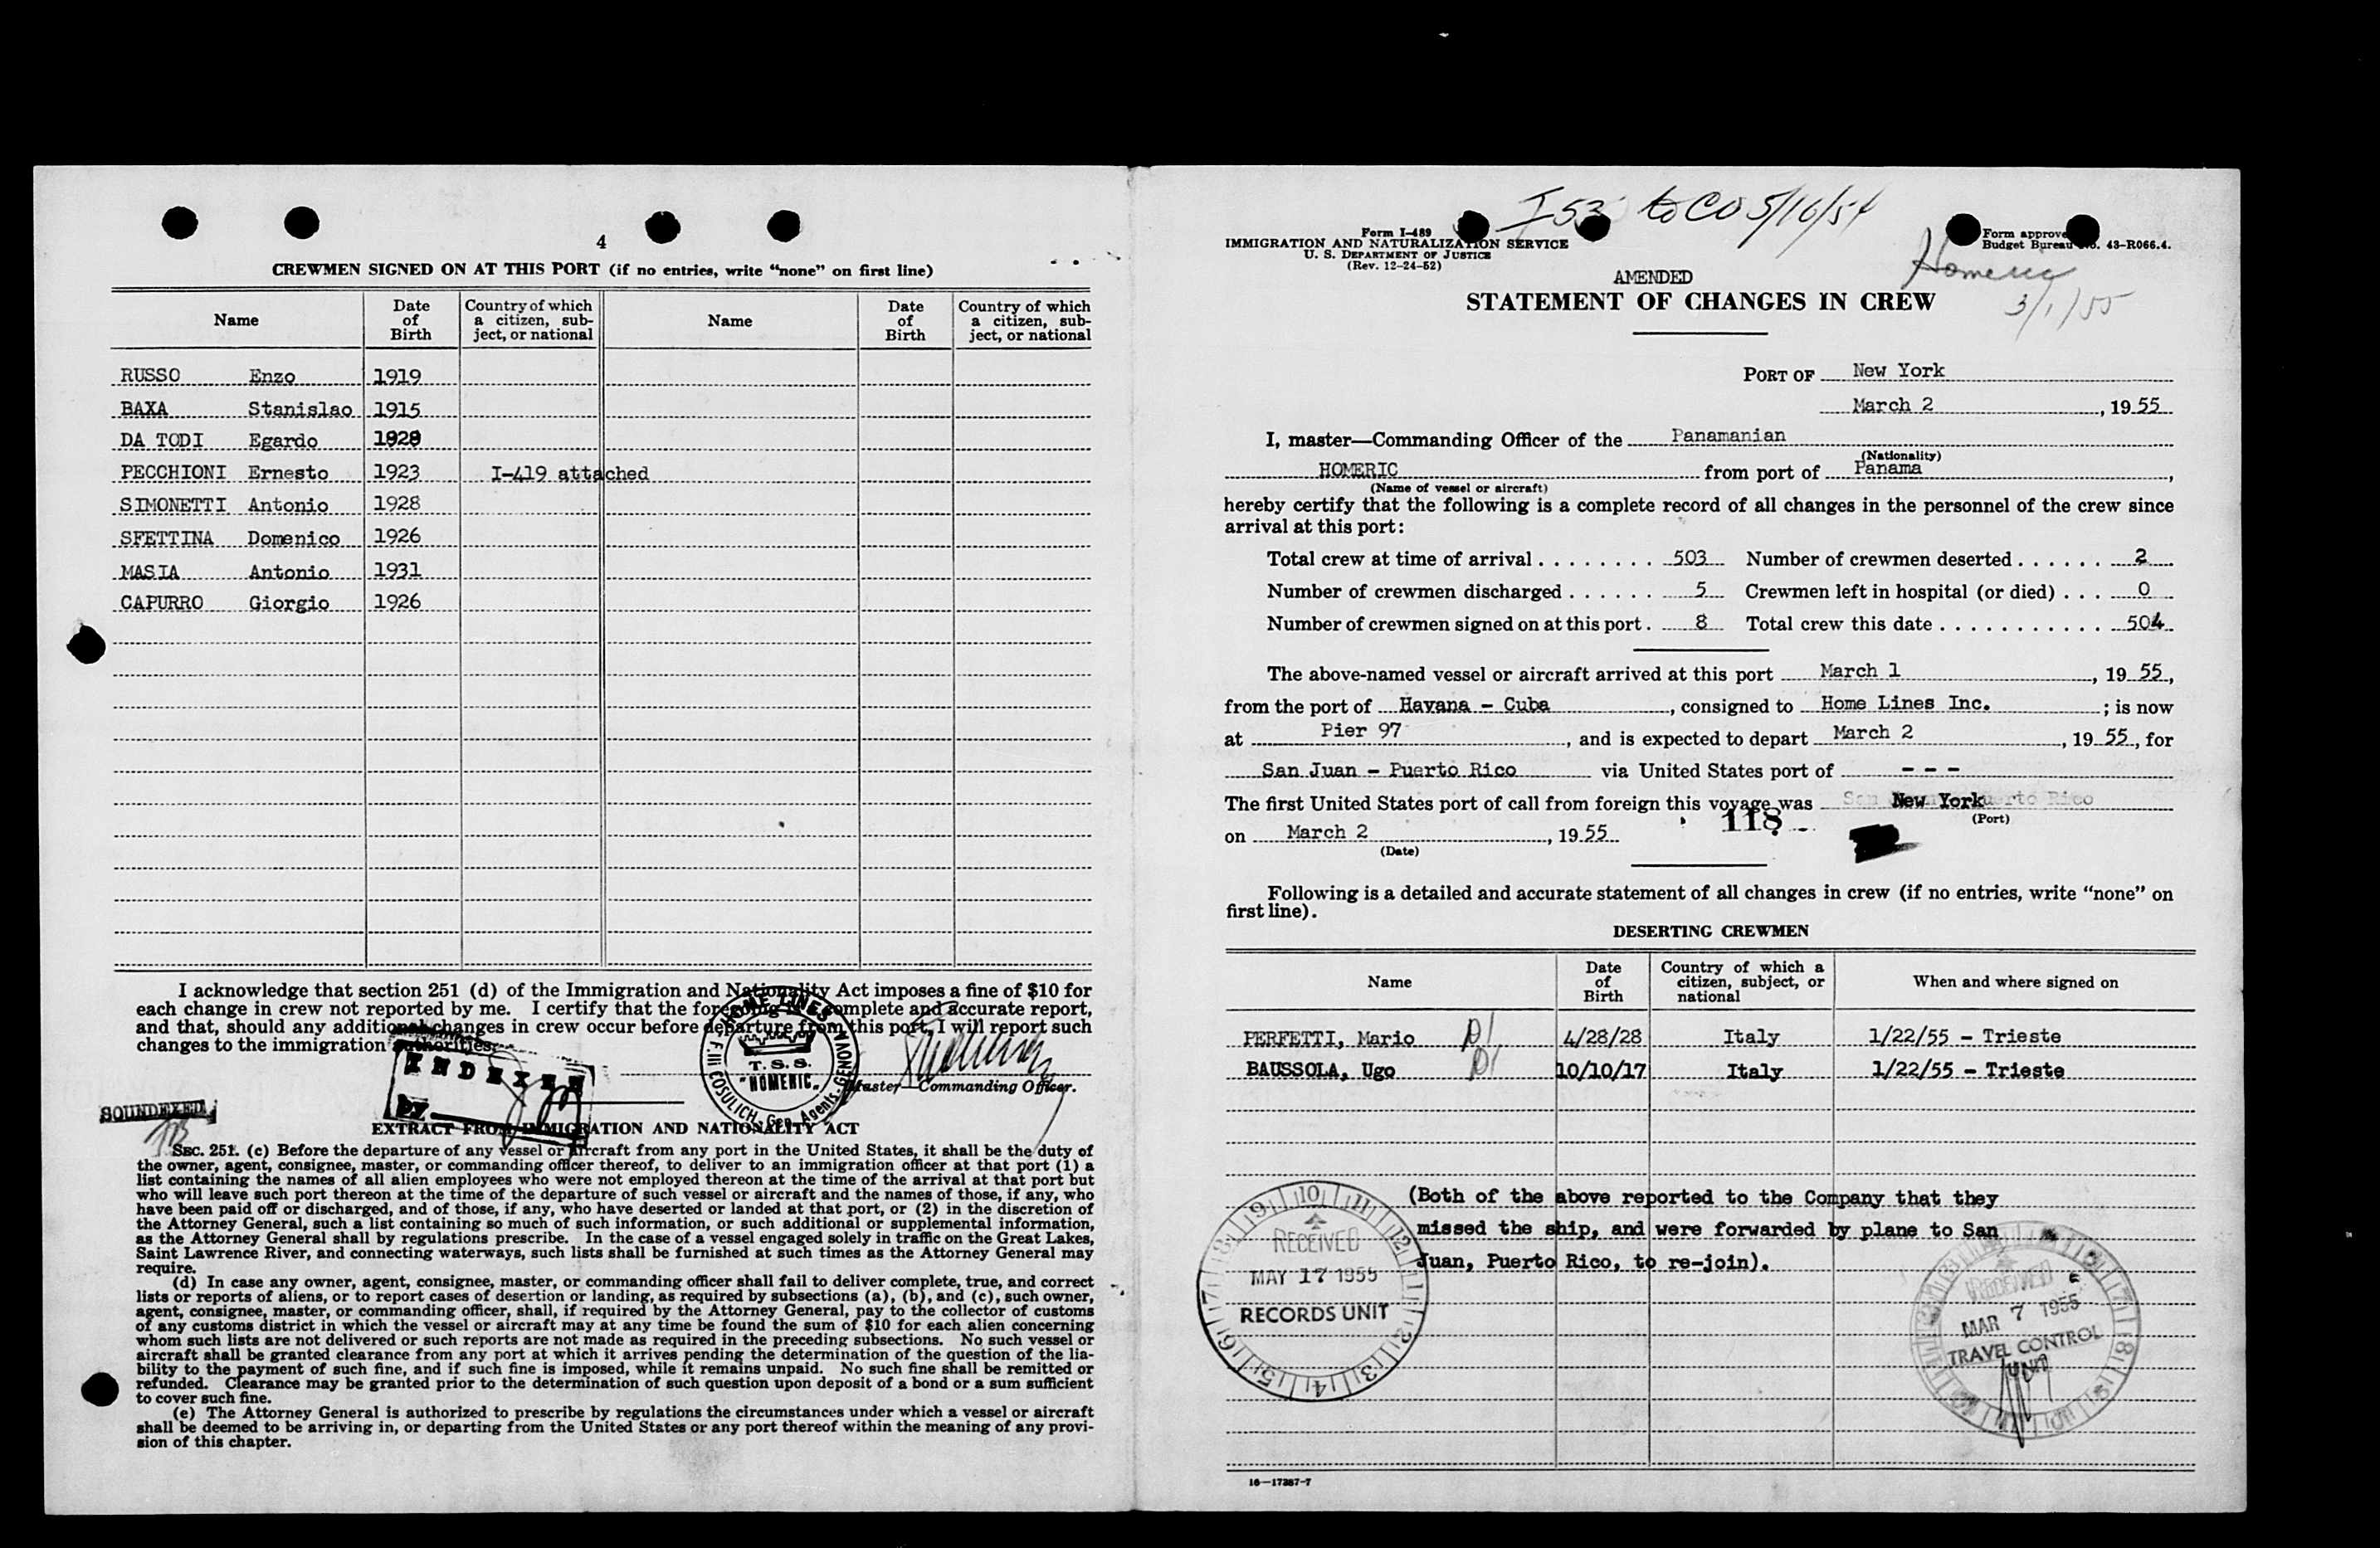 4
CREWMEN SIGNED ON AT THIS PORT (if no entries, write "none" on first line)
Name Date of Birth Country of which a citizen, subject, or national Name Date of Birth Country of which a citizen, subject, or national
RUSSO Enzo 1919
BAXA Stanislao 1915
DA TODI Egardo 1928
PECCHIONI Ernesto 1923 I-419 attached
SIMONETTI Antonio 1928
SFETTINA Domenico 1926
MASIA Antonio 1931
CAPURRO Giorgio 1926
I acknowledge that section 251 (d) of the Immigration and Nationality Act imposes a fine of $10 for
each change in crew not reported by me. I certify that the foregoing is a complete and accurate report,
and that, should any additional changes in crew occur before departure from this port, I will report such
changes to the immigration authorities.
INDEXED
by
HOME LINES
GENOVA
T.S.S.
"HOMERIC"
F.lli COSULICH. Gen. Agents.
Master—Commanding Officer.
SOUNDEXED
EXTRACT FROM IMMIGRATION AND NATIONALITY ACT
SEC. 251. (c) Before the departure of any vessel or aircraft from any port in the United States, it shall be the duty of
the owner, agent, consignee, master, or commanding officer thereof, to deliver to an immigration officer at that port (1) a
list containing the names of all alien employees who were not employed thereon at the time of the arrival at that port but
who will leave such port thereon at the time of the departure of such vessel or aircraft and the names of those, if any, who
have been paid off or discharged, and of those, if any, who have deserted or landed at that port, or (2) in the discretion of
the Attorney General, such a list containing so much of such information, or such additional or supplemental information,
as the Attorney General shall by regulations prescribe. In the case of a vessel engaged solely in traffic on the Great Lakes,
Saint Lawrence River, and connecting waterways, such lists shall be furnished at such times as the Attorney General may
require.
(d) In case any owner, agent, consignee, master, or commanding officer shall fail to deliver complete, true, and correct
lists or reports of aliens, or to report cases of desertion or landing, as required by subsections (a), (b), and (c), such owner,
agent, consignee, master, or commanding officer, shall, if required by the Attorney General, pay to the collector of customs
of any customs district in which the vessel or aircraft may at any time be found the sum of $10 for each alien concerning
whom such lists are not delivered or such reports are not made as required in the preceding subsections. No such vessel or
aircraft shall be granted clearance from any port at which it arrives pending the determination of the question of the lia-
bility to the payment of such fine, and if such fine is imposed, while it remains unpaid. No such fine shall be remitted or
refunded. Clearance may be granted prior to the determination of such question upon deposit of a bond or a sum sufficient
to cover such fine.
(e) The Attorney General is authorized to prescribe by regulations the circumstances under which a vessel or aircraft
shall be deemed to be arriving in, or departing from the United States or any port thereof within the meaning of any provi-
sion of this chapter.
I 53 to CO 5/16/54
Form I-489
IMMIGRATION AND NATURALIZATION SERVICE
U. S. DEPARTMENT OF JUSTICE
(Rev. 12-24-52)
Form approve
Budget Bureau No. 43-R066.4.
Homeric
3/1/55
AMENDED
STATEMENT OF CHANGES IN CREW
PORT OF New York
March 2, 1955
I, master—Commanding Officer of the Panamanian
(Nationality)
HOMERIC from port of Panama,
(Name of vessel or aircraft)
hereby certify that the following is a complete record of all changes in the personnel of the crew since
arrival at this port:
Total crew at time of arrival . . . . . . . . 503 Number of crewmen deserted . . . . . . 2
Number of crewmen discharged . . . . . . 5 Crewmen left in hospital (or died) . . . 0
Number of crewmen signed on at this port . 8 Total crew this date . . . . . . . . . . . . 504
The above-named vessel or aircraft arrived at this port March 1, 19 55,
from the port of Havana - Cuba, consigned to Home Lines Inc.; is now
at Pier 97, and is expected to depart March 2, 19 55, for
San Juan - Puerto Rico via United States port of - - -
The first United States port of call from foreign this voyage was New York
(Port)
on March 2, 19 55
(Date)
118
Following is a detailed and accurate statement of all changes in crew (if no entries, write "none" on
first line).
DESERTING CREWMEN
Name Date of Birth Country of which a citizen, subject, or national When and where signed on
PERFETTI, Mario 4/28/28 Italy 1/22/55 - Trieste
BAUSSOLA, Ugo 10/10/17 Italy 1/22/55 - Trieste
(Both of the above reported to the Company that they
missed the ship, and were forwarded by plane to San
Juan, Puerto Rico, to re-join).
RECEIVED
MAY 17 1955
RECORDS UNIT
RECEIVED
MAR 7 1955
TRAVEL CONTROL
UNIT
16—17287-7